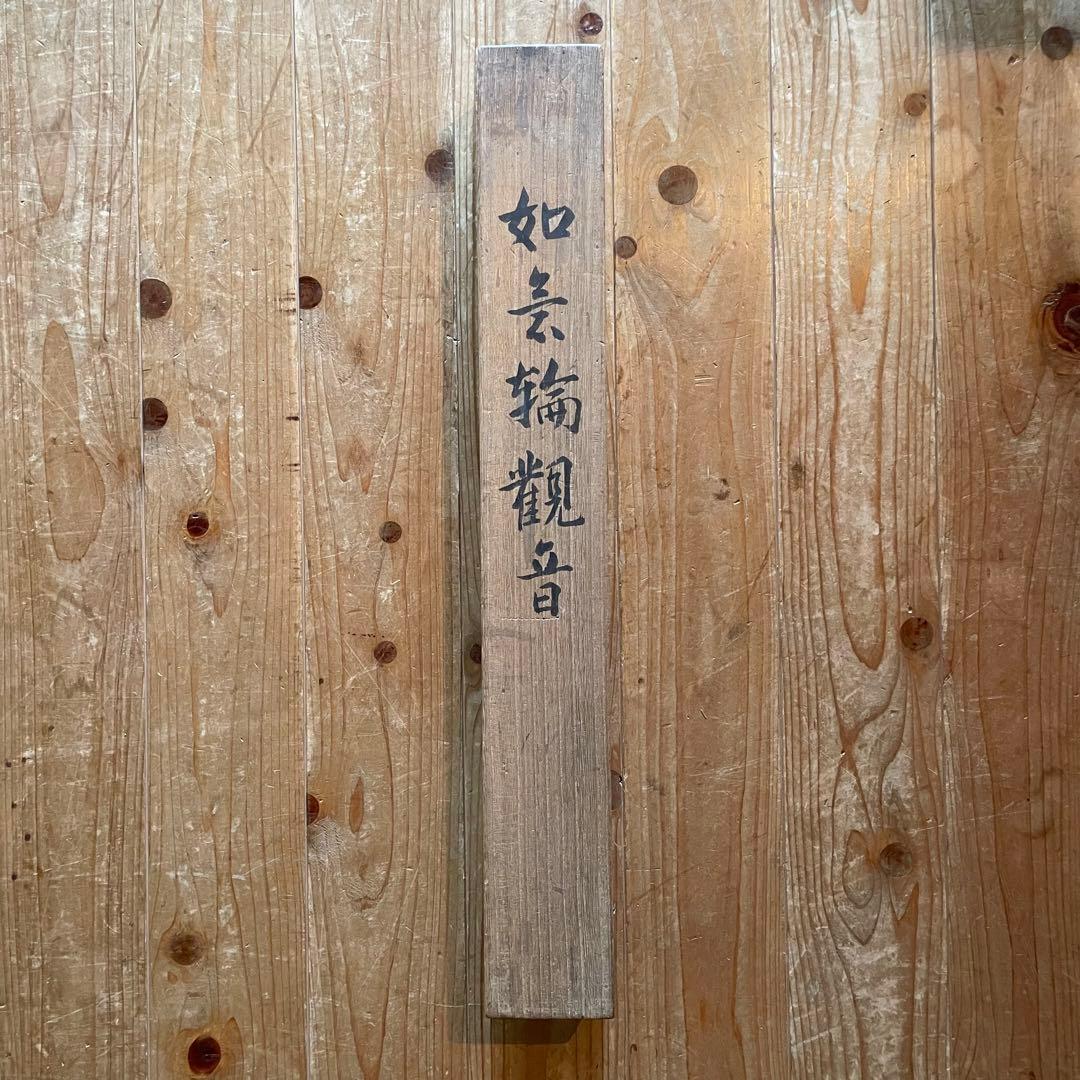 如意輪觀音